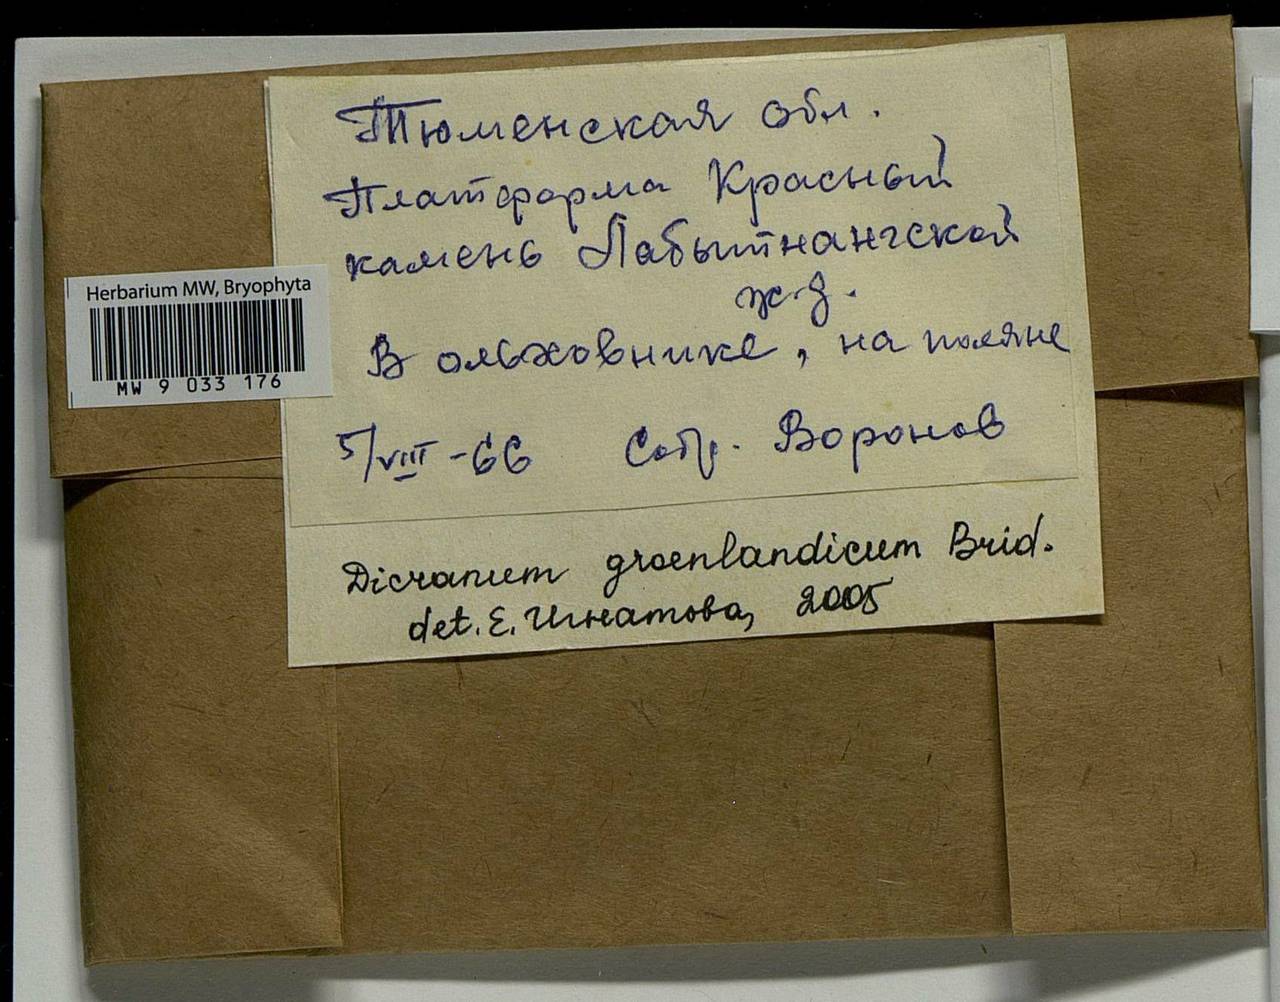 Тюменская обл.
Платформа Красный
камень Лабытнангской
ж.д.
В ольховнике, на поляне
5/VIII-66 Собр. Воронов
Dicranum groenlandicum Brid.
det. E. Игнатова, 2005
Herbarium MW, Bryophyta
MW 9 033 176